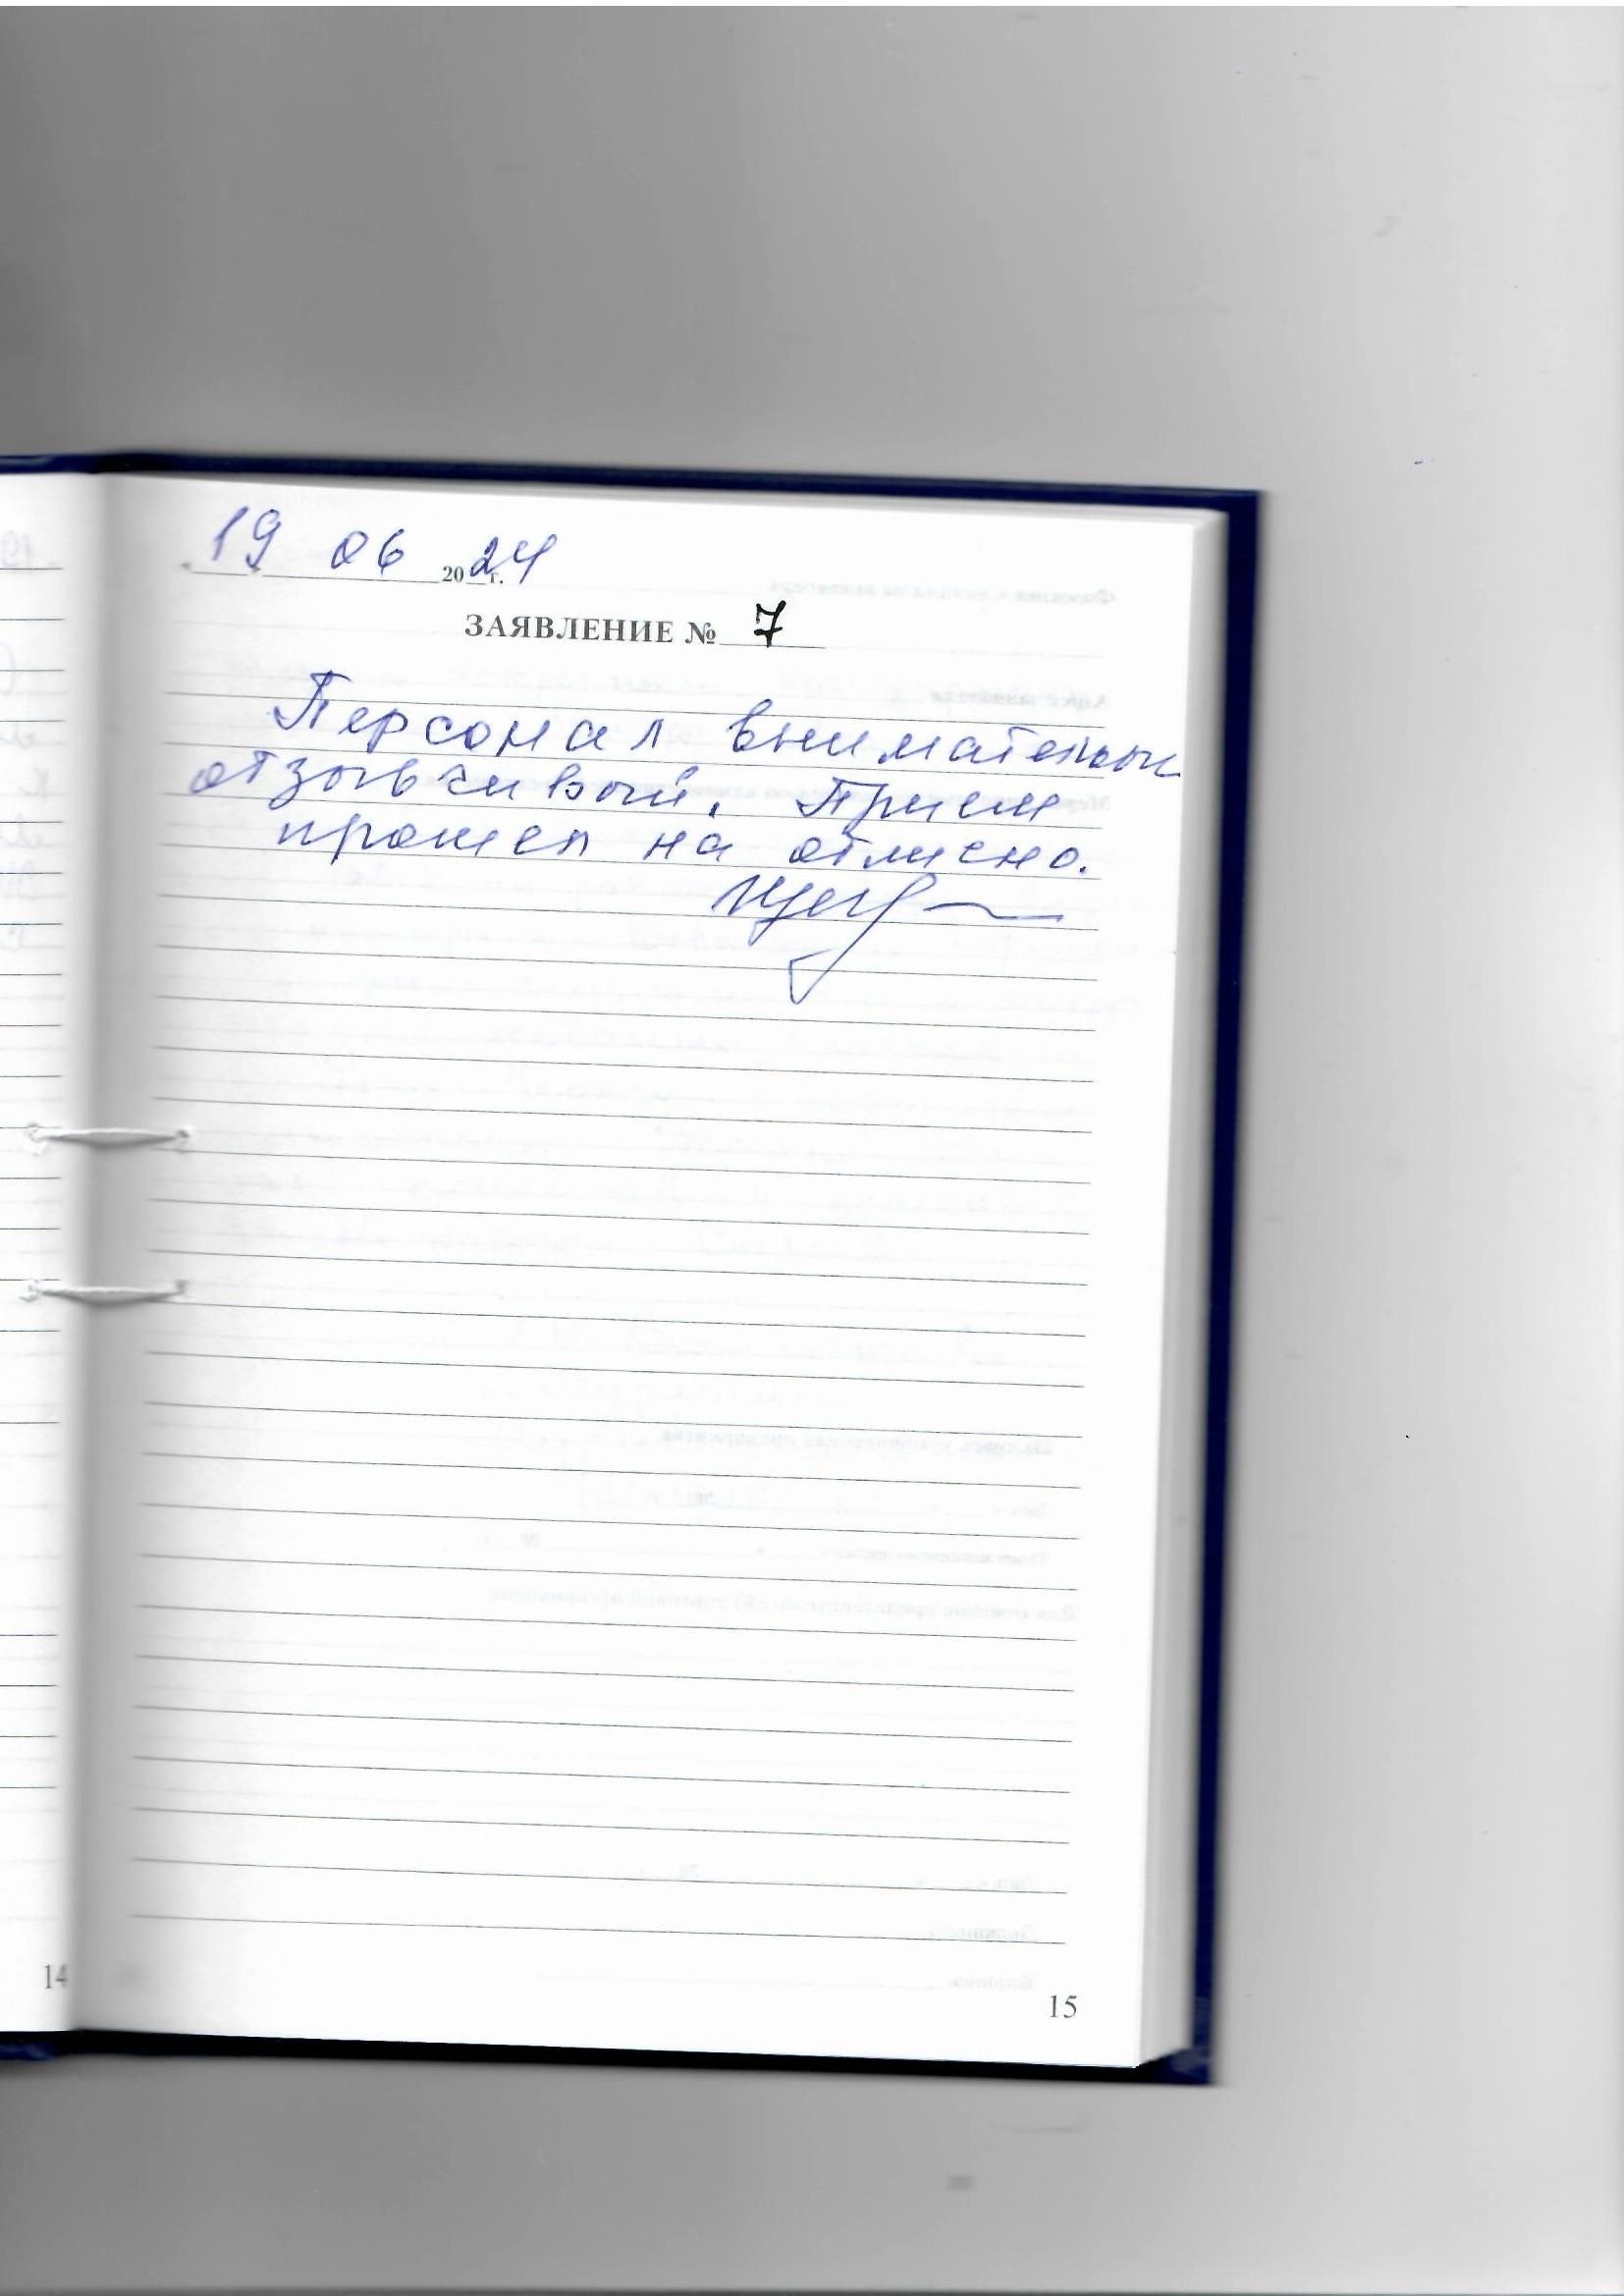 19 06 2024 г.
ЗАЯВЛЕНИЕ № 7
Персонал внимательный
отзывчивый. Прием
прошел на отлично.
14
15